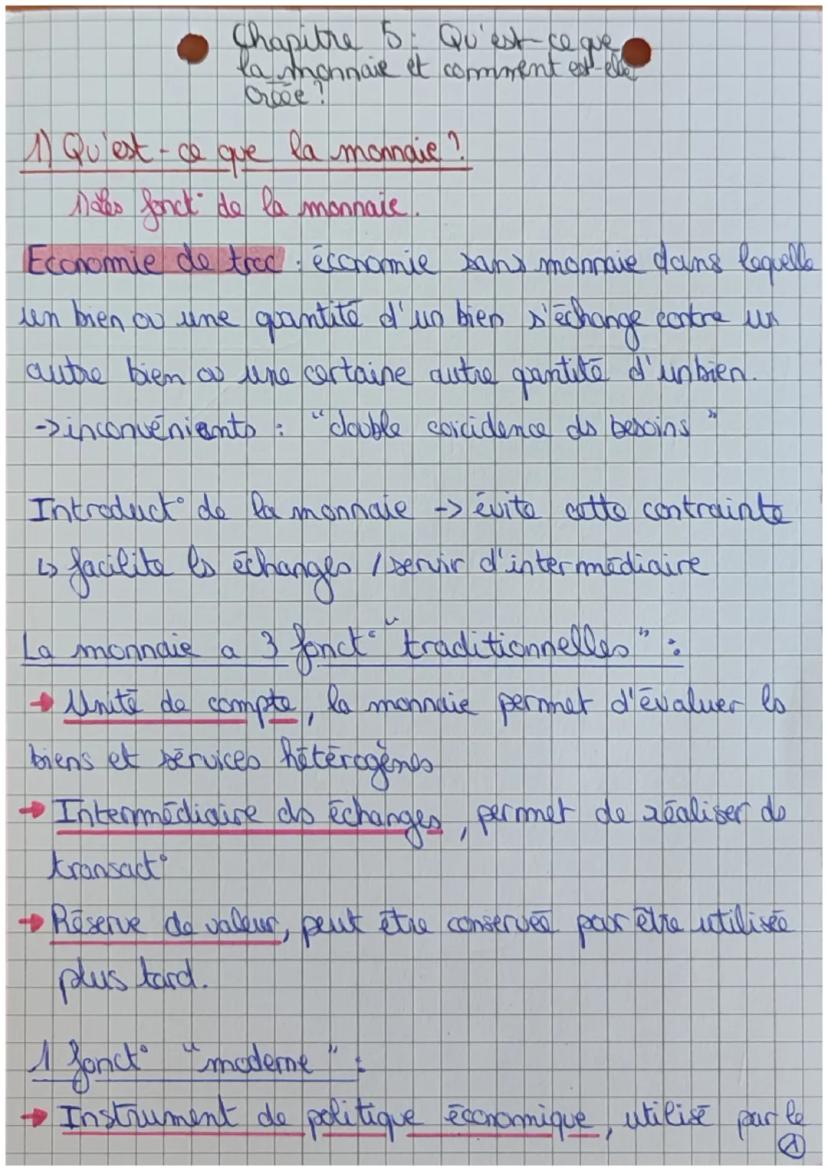 Chapitre 5 : Qu'est-ce que
la monnaie et comment est-elle
créée ?
1) Qu'est-ce que la monnaie ?
1) Les fonct° de la monnaie.
Economie de troc : économie sans monnaie dans laquelle
un bien ou une quantité d'un bien s'échange contre un
autre bien ou une certaine autre quantité d'un bien.
-> inconvénients : "double coïcidence ds besoins"
Introduct° de la monnaie -> évite cette contrainte
↳ facilite ls échanges / servir d'intermédiaire
La monnaie a 3 fonct° "traditionnelles" :
→ Unité de compte, la monnaie permet d'évaluer ls
biens et services hétérogènes
→ Intermédiaire ds échanges, permet de réaliser de
transact°
→ Réserve de valeur, peut être conservée pour être utilisée
plus tard.
1 fonct° "moderne" :
→ Instrument de politique économique, utilisé par le
1